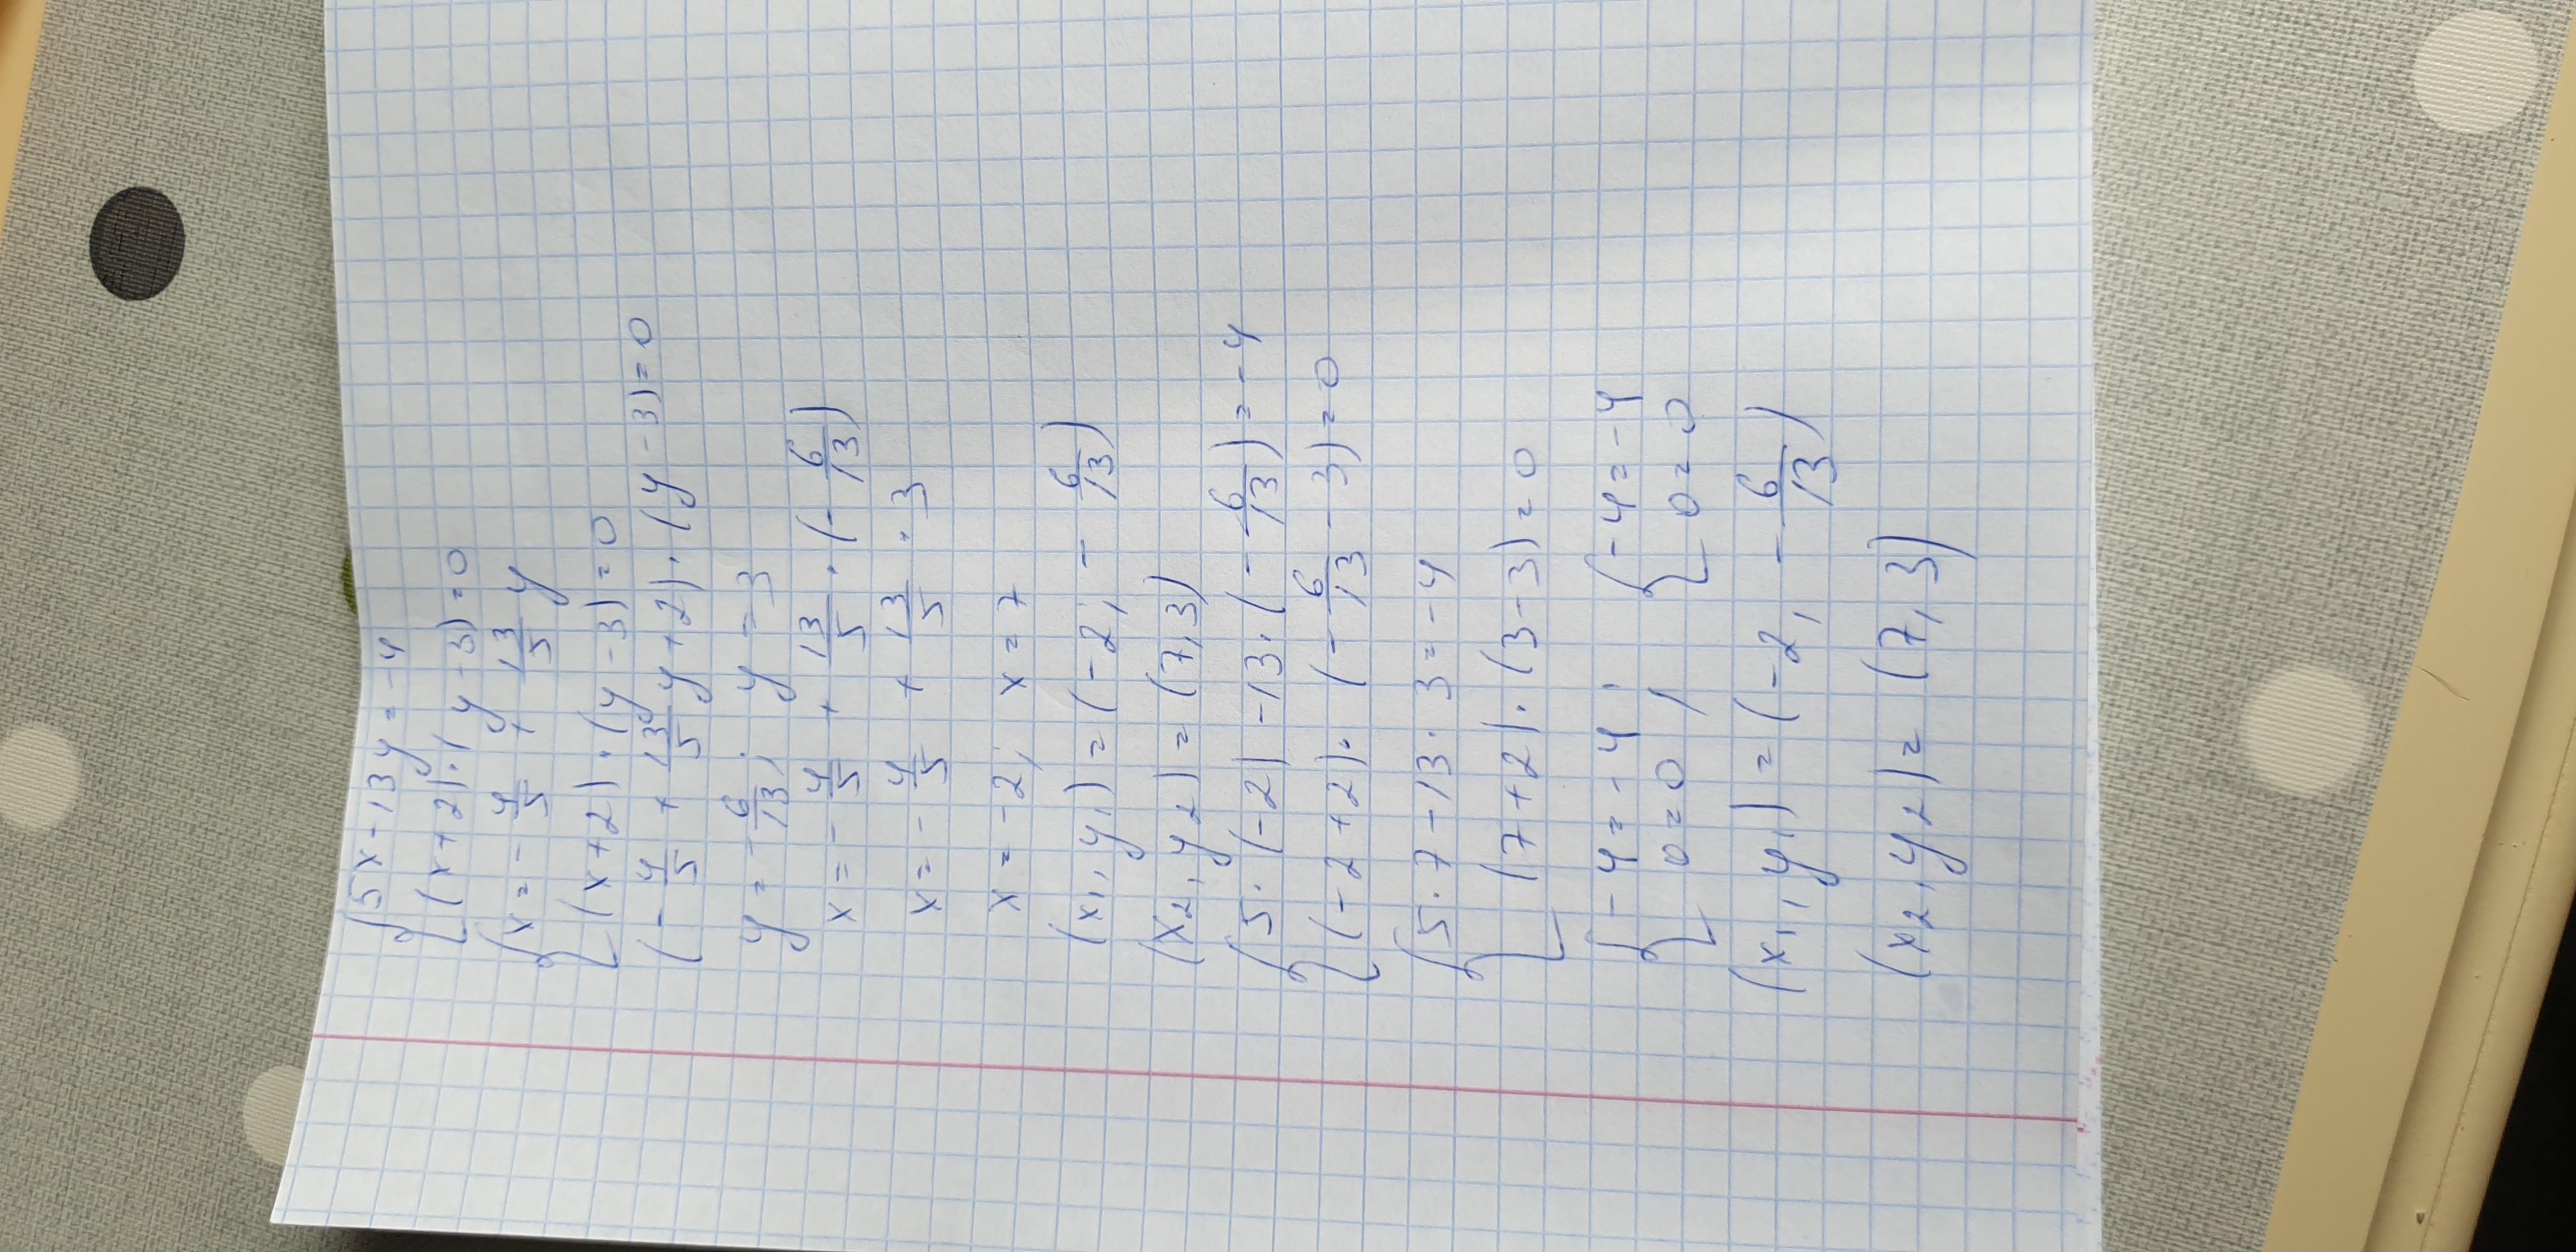 {5x-13y=-4
{(x+2)·(y-3)=0
{x=-4/5+13/5y
{(x+2)·(y-3)=0
(-4/5+13/5y+2)·(y-3)=0
y=-6/13; y=3
x=-4/5+13/5·(-6/13)
x=-4/5+13/5·3
x=-2; x=7
(x₁,y₁)=(-2,-6/13)
(x₂,y₂)=(7,3)
{5·(-2)-13·(-6/13)=-4
{(-2+2)·(-6/13-3)=0
{5·7-13·3=-4
{(7+2)·(3-3)=0
{-4=-4; {-4=-4
{0=0 ; {0=0
(x₁,y₁)=(-2,-6/13)
(x₂,y₂)=(7,3)